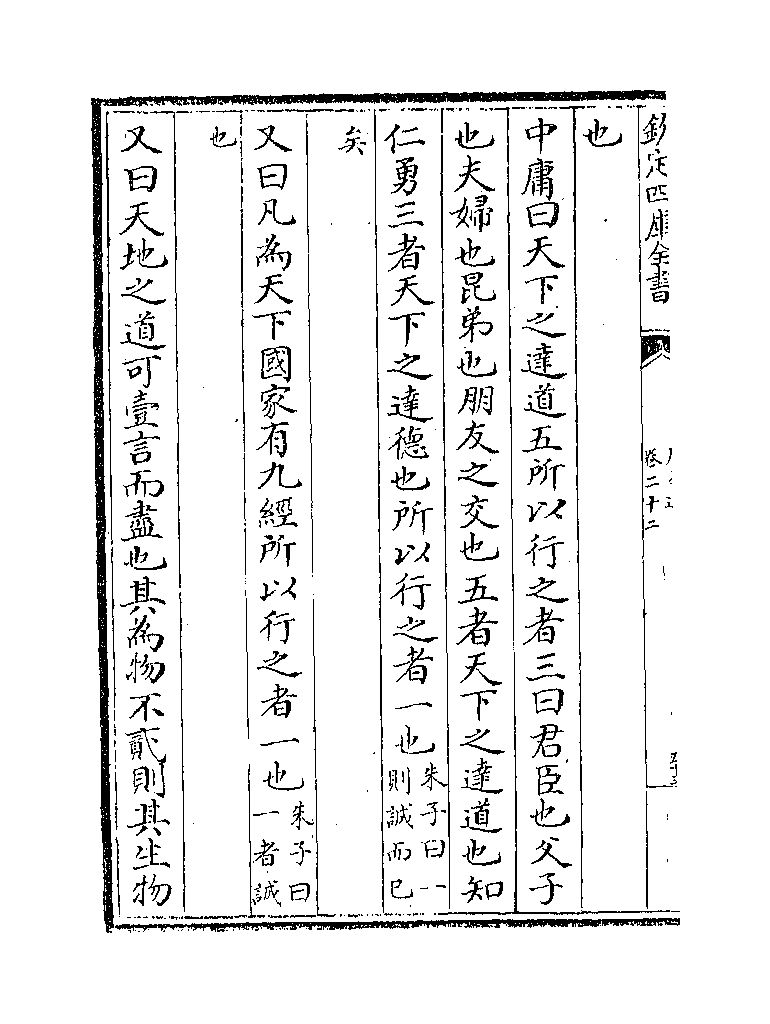 欽定四庫全書
卷二十二
也
中庸曰天下之達道五所以行之者三曰君臣也父子
也夫婦也昆弟也朋友之交也五者天下之達道也知
仁勇三者天下之達德也所以行之者一也朱子曰一
則誠而已
矣
又曰凡為天下國家有九經所以行之者一也朱子曰
一者誠
也
又曰天地之道可壹言而盡也其為物不貳則其生物